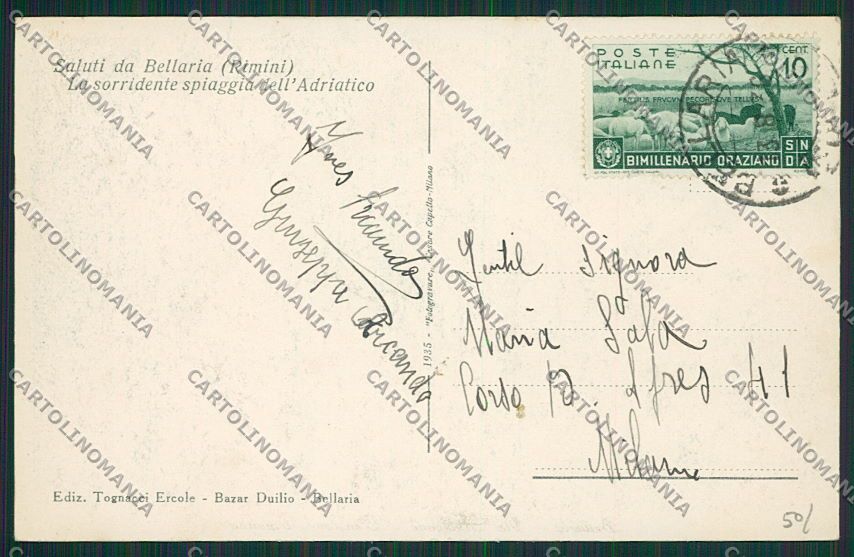 Saluti da Bellaria (Rimini)
La sorridente spiaggia dell'Adriatico
POSTE
ITALIANE
CENT.
10
BIMILLENARIO ORAZIANO
SN
DA
Giuseppe
1935 - "Fotogravure" Cesare Capello - Milano
Gentil Signora
Maria
Corso
41
Milano
Ediz. Tognacci Ercole - Bazar Duilio - Bellaria
50/
CARTOLINOMANIA